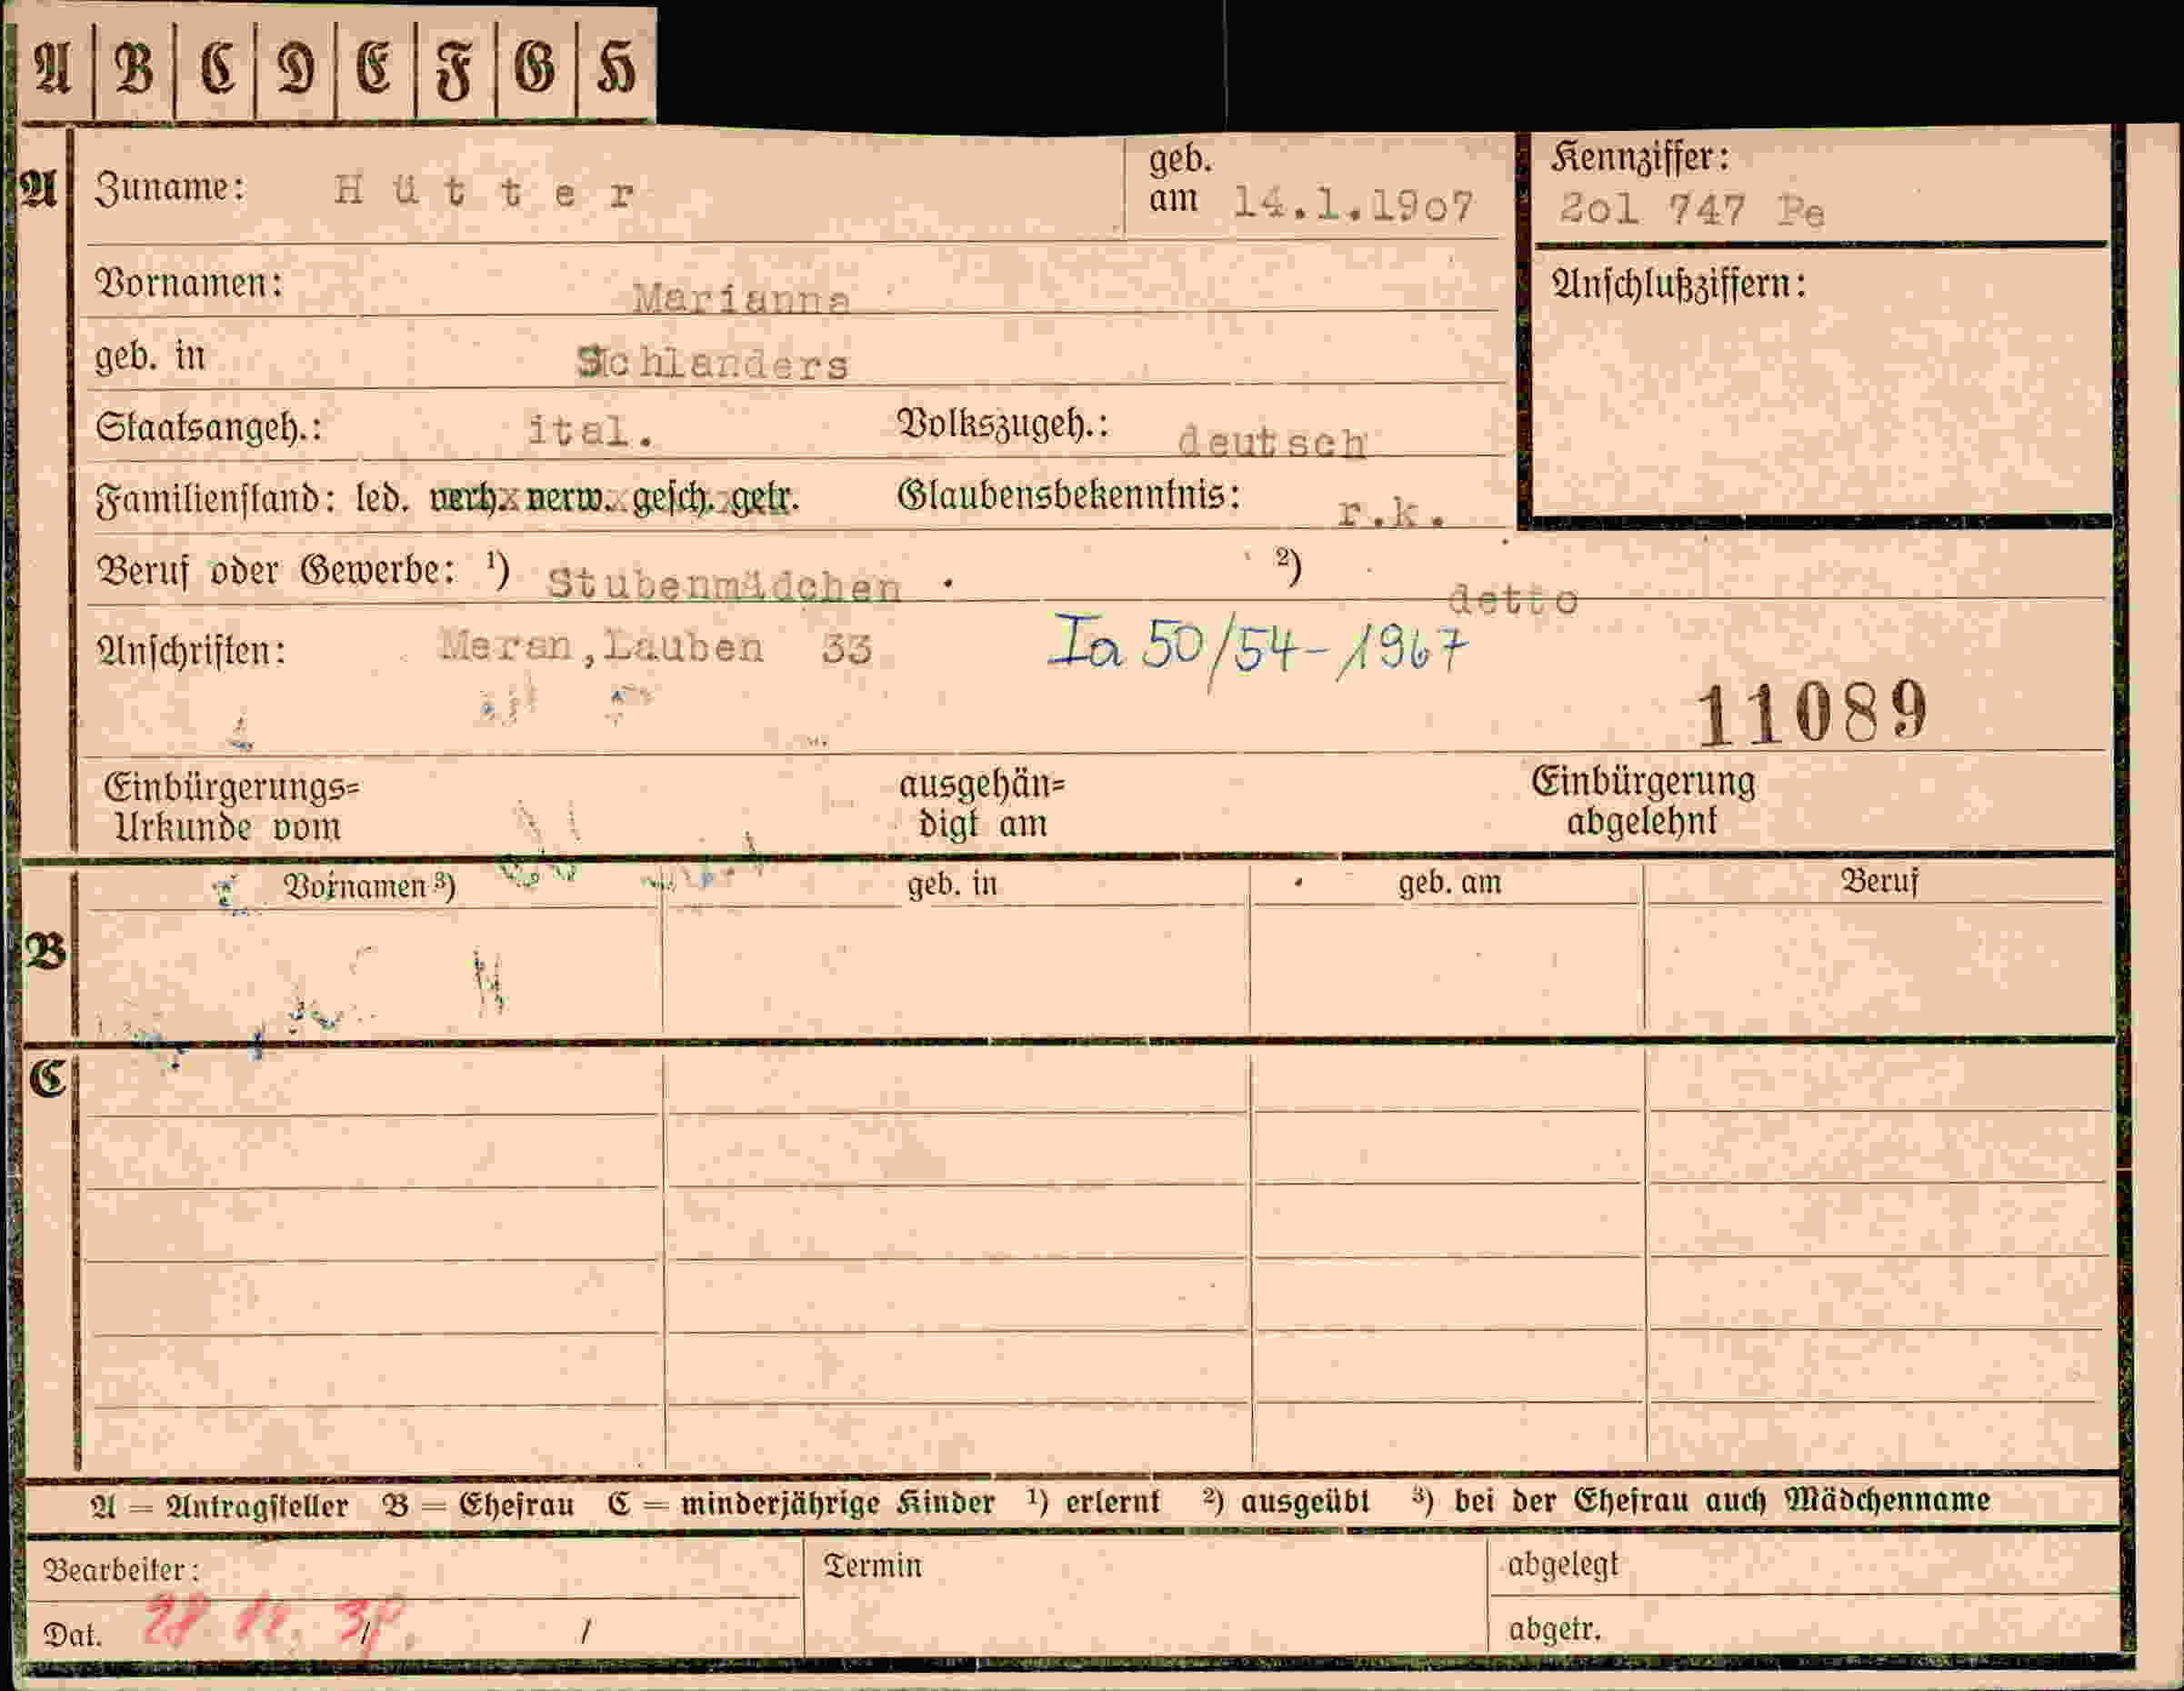 A B C D E F G H
A
Zuname: Hütter
geb.
am 14.1.19o7
Kennziffer:
2o1 747 Pe
Vornamen: Marianna
Anschlußziffern:
geb. in Schlanders
Staatsangeh.: ital. Volkszugeh.: deutsch
Familienstand: led. verh. verw. gesch. getr. Glaubensbekenntnis: r.k.
Beruf oder Gewerbe: ¹) Stubenmädchen ²) detto
Anschriften: Meran,Lauben 33 Ia 50/54-1967
11089
Einbürgerungs=
Urkunde vom
ausgehän=
digt am
Einbürgerung
abgelehnt
B
Vornamen ³) geb. in geb. am Beruf
C
A = Antragsteller B = Ehefrau C = minderjährige Kinder ¹) erlernt ²) ausgeübt ³) bei der Ehefrau auch Mädchenname
Bearbeiter: Termin abgelegt
Dat. / / abgetr.